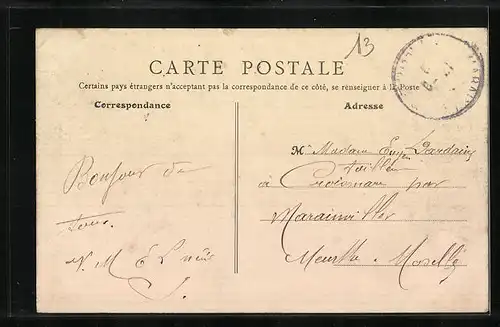 13
CARTE POSTALE
Certains pays étrangers n'acceptant pas la correspondance de ce côté, se renseigner à la Poste
Correspondance
Adresse
M Madame Eugen
à Croismare par
Marainviller
Meurthe Moselle
Bonjour de
tous